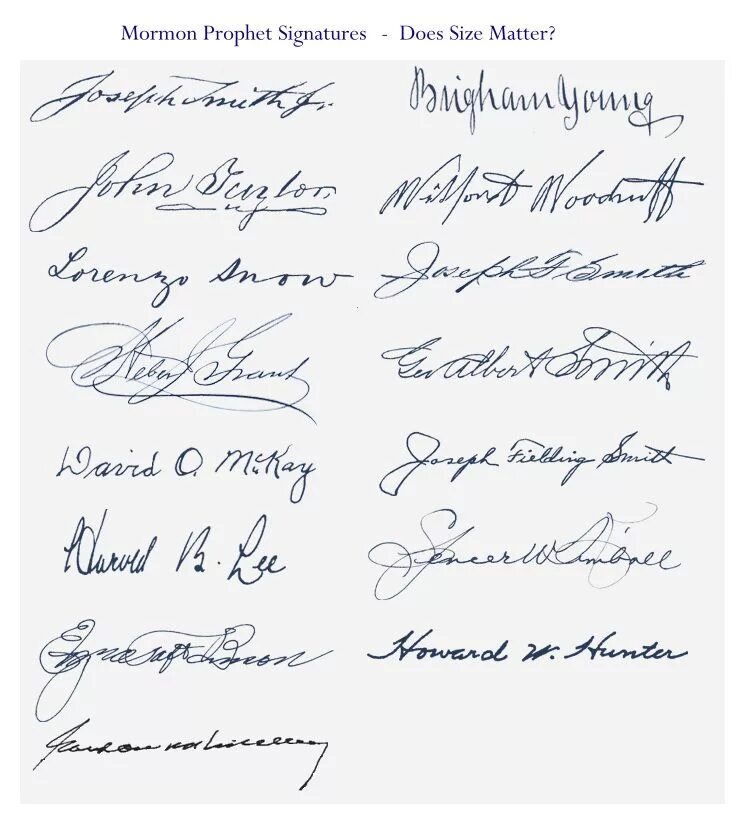 Mormon Prophet Signatures - Does Size Matter?
Joseph Smith Jr. Brigham Young
John Taylor Wilford Woodruff
Lorenzo Snow Joseph F. Smith
Heber J. Grant Geo Albert Smith
David O. McKay Joseph Fielding Smith
Harold B. Lee Spencer W. Kimball
Ezra Taft Benson Howard W. Hunter
Gordon B. Hinckley